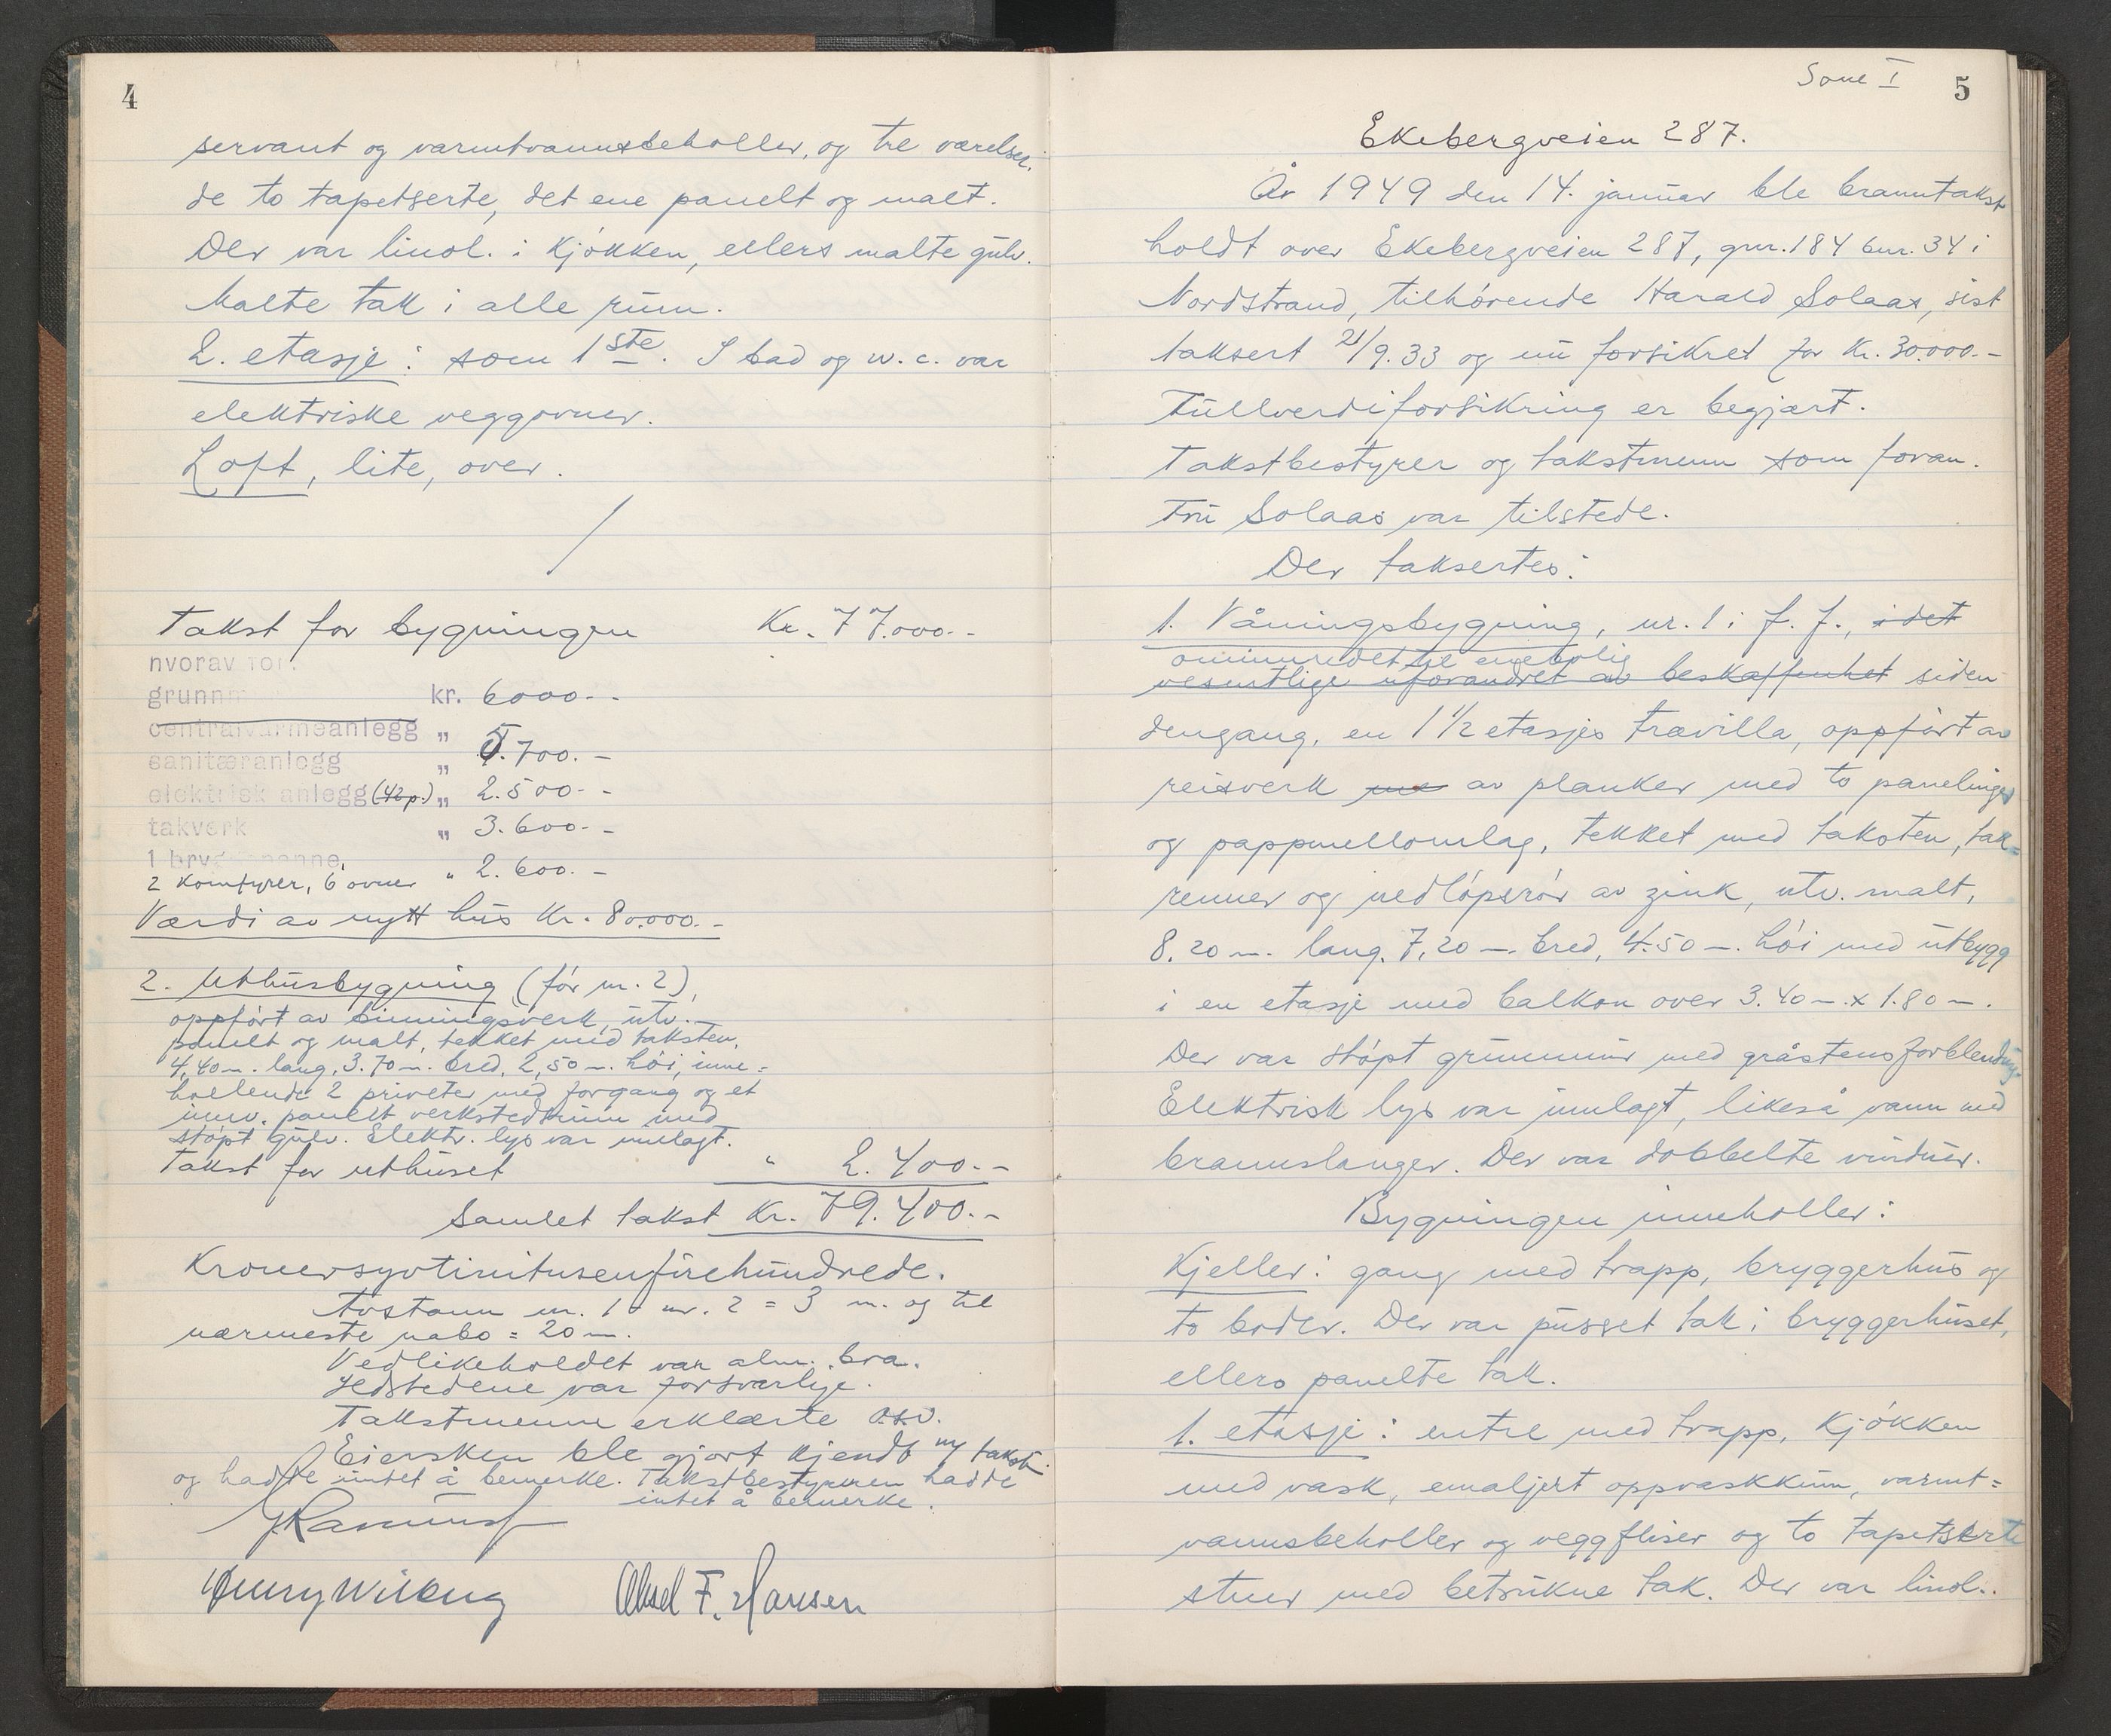 4
servant og varmtvannsbeholler, og tre værelser,
de to tapetserte, det ene panelt og malt.
Der var linol. i kjøkken, ellers malte gulv.
Malte tak i alle rum.
2. etasje: som 1ste. I bad og w.c. var
elektriske veggovner.
Loft, lite, over.
Takst for bygningen Kr. 77.000.-
hvorav for:
grunnm kr. 6000.-
centralvarmeanlegg „
sanitæranlegg „ 5.700.-
elektrisk anlegg (42p.) „ 2.500.-
takverk „ 3.600.-
1 bryggepanne,
2 komfyrer, 6 ovner „ 2.600.-
Værdi av nytt hus Kr. 80.000.-
2. Uthusbygning (før nr. 2),
oppført av binningsverk, utv.
panelt og malt, tekket med taksten,
4,40 m. lang, 3.70 m. bred, 2,50 m. høi, inne=
hollende 2 priveter med forgang og et
innv. panelt verkstedrum med
støpt gulv. Elektr. lys var innlagt.
Takst for uthuset „ 2.400.-
Samlet takst Kr. 79.400.-
Kronersyvtinitusenfirehundrede.
Avstann nr. 1 - nr. 2 = 3 m. og til
nærmeste nabo = 20 m.
Vedlikeholdet var alm. bra.
Ildstedene var forsvarlige.
Takstmenne erklærte o.s.v.
Eiersken ble gjort kjendt m/ takst
og hadde intet å bemerke. Takstbestyreren hadde
intet å bemerke.
Aksel F. Hansen
Sone I 5
Ekebergveien 287.
År 1949 den 14. januar ble branntakst
holdt over Ekebergveien 287, gnr. 184 bnr. 34 i
Nordstrand, tilhørende Harald Solaas, sist
taksert 21/9.33 og nu forsikret for Kr. 30.000.-
Fullverdiforsikring er begjært.
Takstbestyrer og takstmenn som foran.
Fru Solaas var tilstede.
Der taksertes:
1. Våningsbygning, nr. 1 i f. f., i det
ominnredet til enebolig
vesentlige uforandret av beskaffenhet siden
dengang, en 1 1/2 etasjes trævilla, oppført av
reisverk av planker med to panelinger
og pappmellomlag, tekket med taksten, tak=
renner og nedløpsrør av zink, utv. malt,
8.20 m. lang, 7,20 m. bred, 4.50 m. høi med utbygg
i en etasje med balkon over 3.40 m. x 1.80 m.
Der var støpt grunnmur med gråstensforblending.
Elektrisk lys var innlagt, likeså vann med
brannslanger. Der var dobbelte vinduer.
Bygningen inneholler:
Kjeller: gang med trapp, bryggerhus og
to boder. Der var pusset tak i bryggerhuset,
ellers panelte tak.
1. etasje: entre med trapp, kjøkken
med vask, emaljert oppvaskkum, varmt=
vannsbeholler og veggfliser og to tapetserte
stuer med betrukne tak. Der var linol.